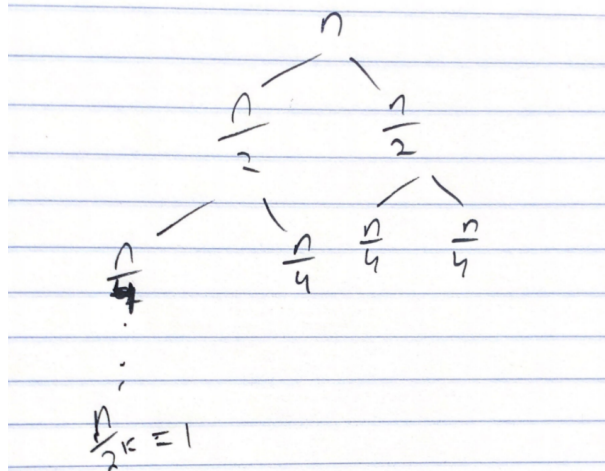 n
n/2 n/2
n/4 n/4 n/4 n/4
.
.
n/2^k = 1